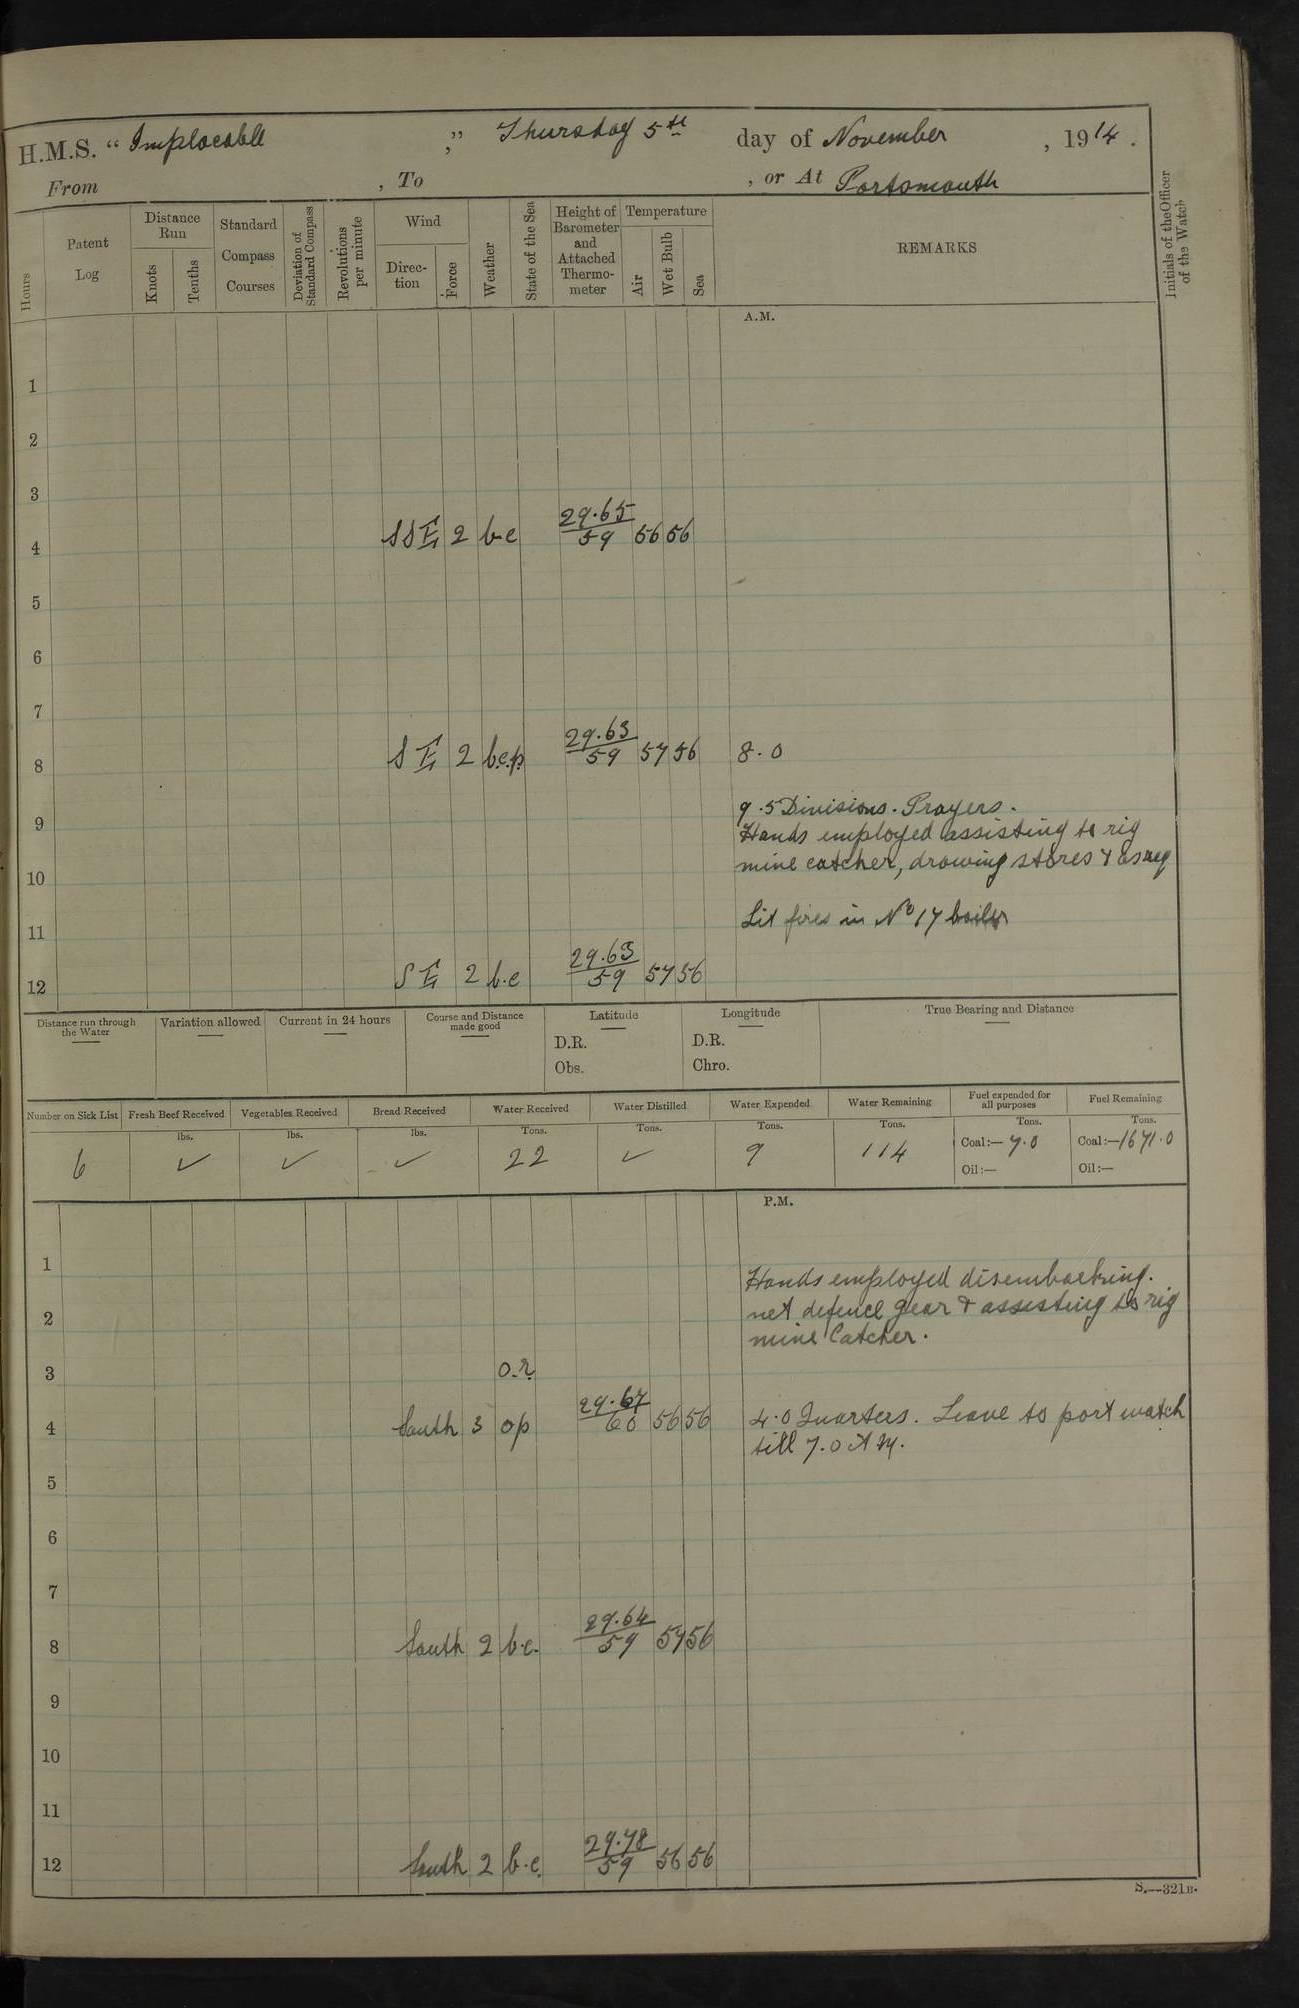 H.M.S. “ Implacable ,” Thursday 5th day of November , 1914 .
From , To , or At Portsmouth
Hours
Patent Log
Distance Run
Knots
Tenths
Standard Compass Courses
Deviation of Standard Compass
Revolutions per minute
Wind
Direc-tion
Force
Weather
State of the Sea
Height of Barometer and Attached Thermo-meter
Temperature
Air
Wet Bulb
Sea
REMARKS
Initials of the Officer of the Watch
A.M.
1
2
3
4 SSE 2 b.c 29.65/59 56 56
5
6
7
8 SE 2 b.c.p. 29.63/59 57 56 8.0
9.5 Divisions. Prayers.
9 Hands employed assisting to rig
mine catcher, drawing stores & as req
10
Lit fires in No 17 boiler
11
12 SE 2 b.c 29.63/59 57 56
Distance run through the Water
Variation allowed
Current in 24 hours
Course and Distance made good
Latitude
D.R.
Obs.
Longitude
D.R.
Chro.
True Bearing and Distance
Number on Sick List 6
Fresh Beef Received lbs. ✓
Vegetables Received lbs. ✓
Bread Received lbs. ✓
Water Received Tons. 22
Water Distilled Tons. ✓
Water Expended Tons. 9
Water Remaining Tons. 114
Fuel expended for all purposes Tons. Coal:— 7.0 Oil:—
Fuel Remaining Tons. Coal:— 1671.0 Oil:—
P.M.
1
Hands employed disembarking.
2 net defence gear & assisting to rig
mine Catcher.
3 o.r.
4 South 3 op 29.67/60 56 56 4.0 Quarters. Leave to port watch
till 7.0 AM.
5
6
7
8 South 2 b.c. 29.64/59 57 56
9
10
11
12 South 2 b.c. 29.78/59 56 56
S.—321B.